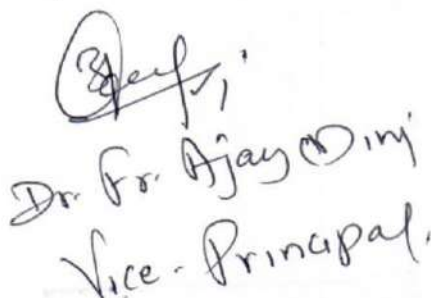 Dr. Fr. Ajay
Vice-Principal.